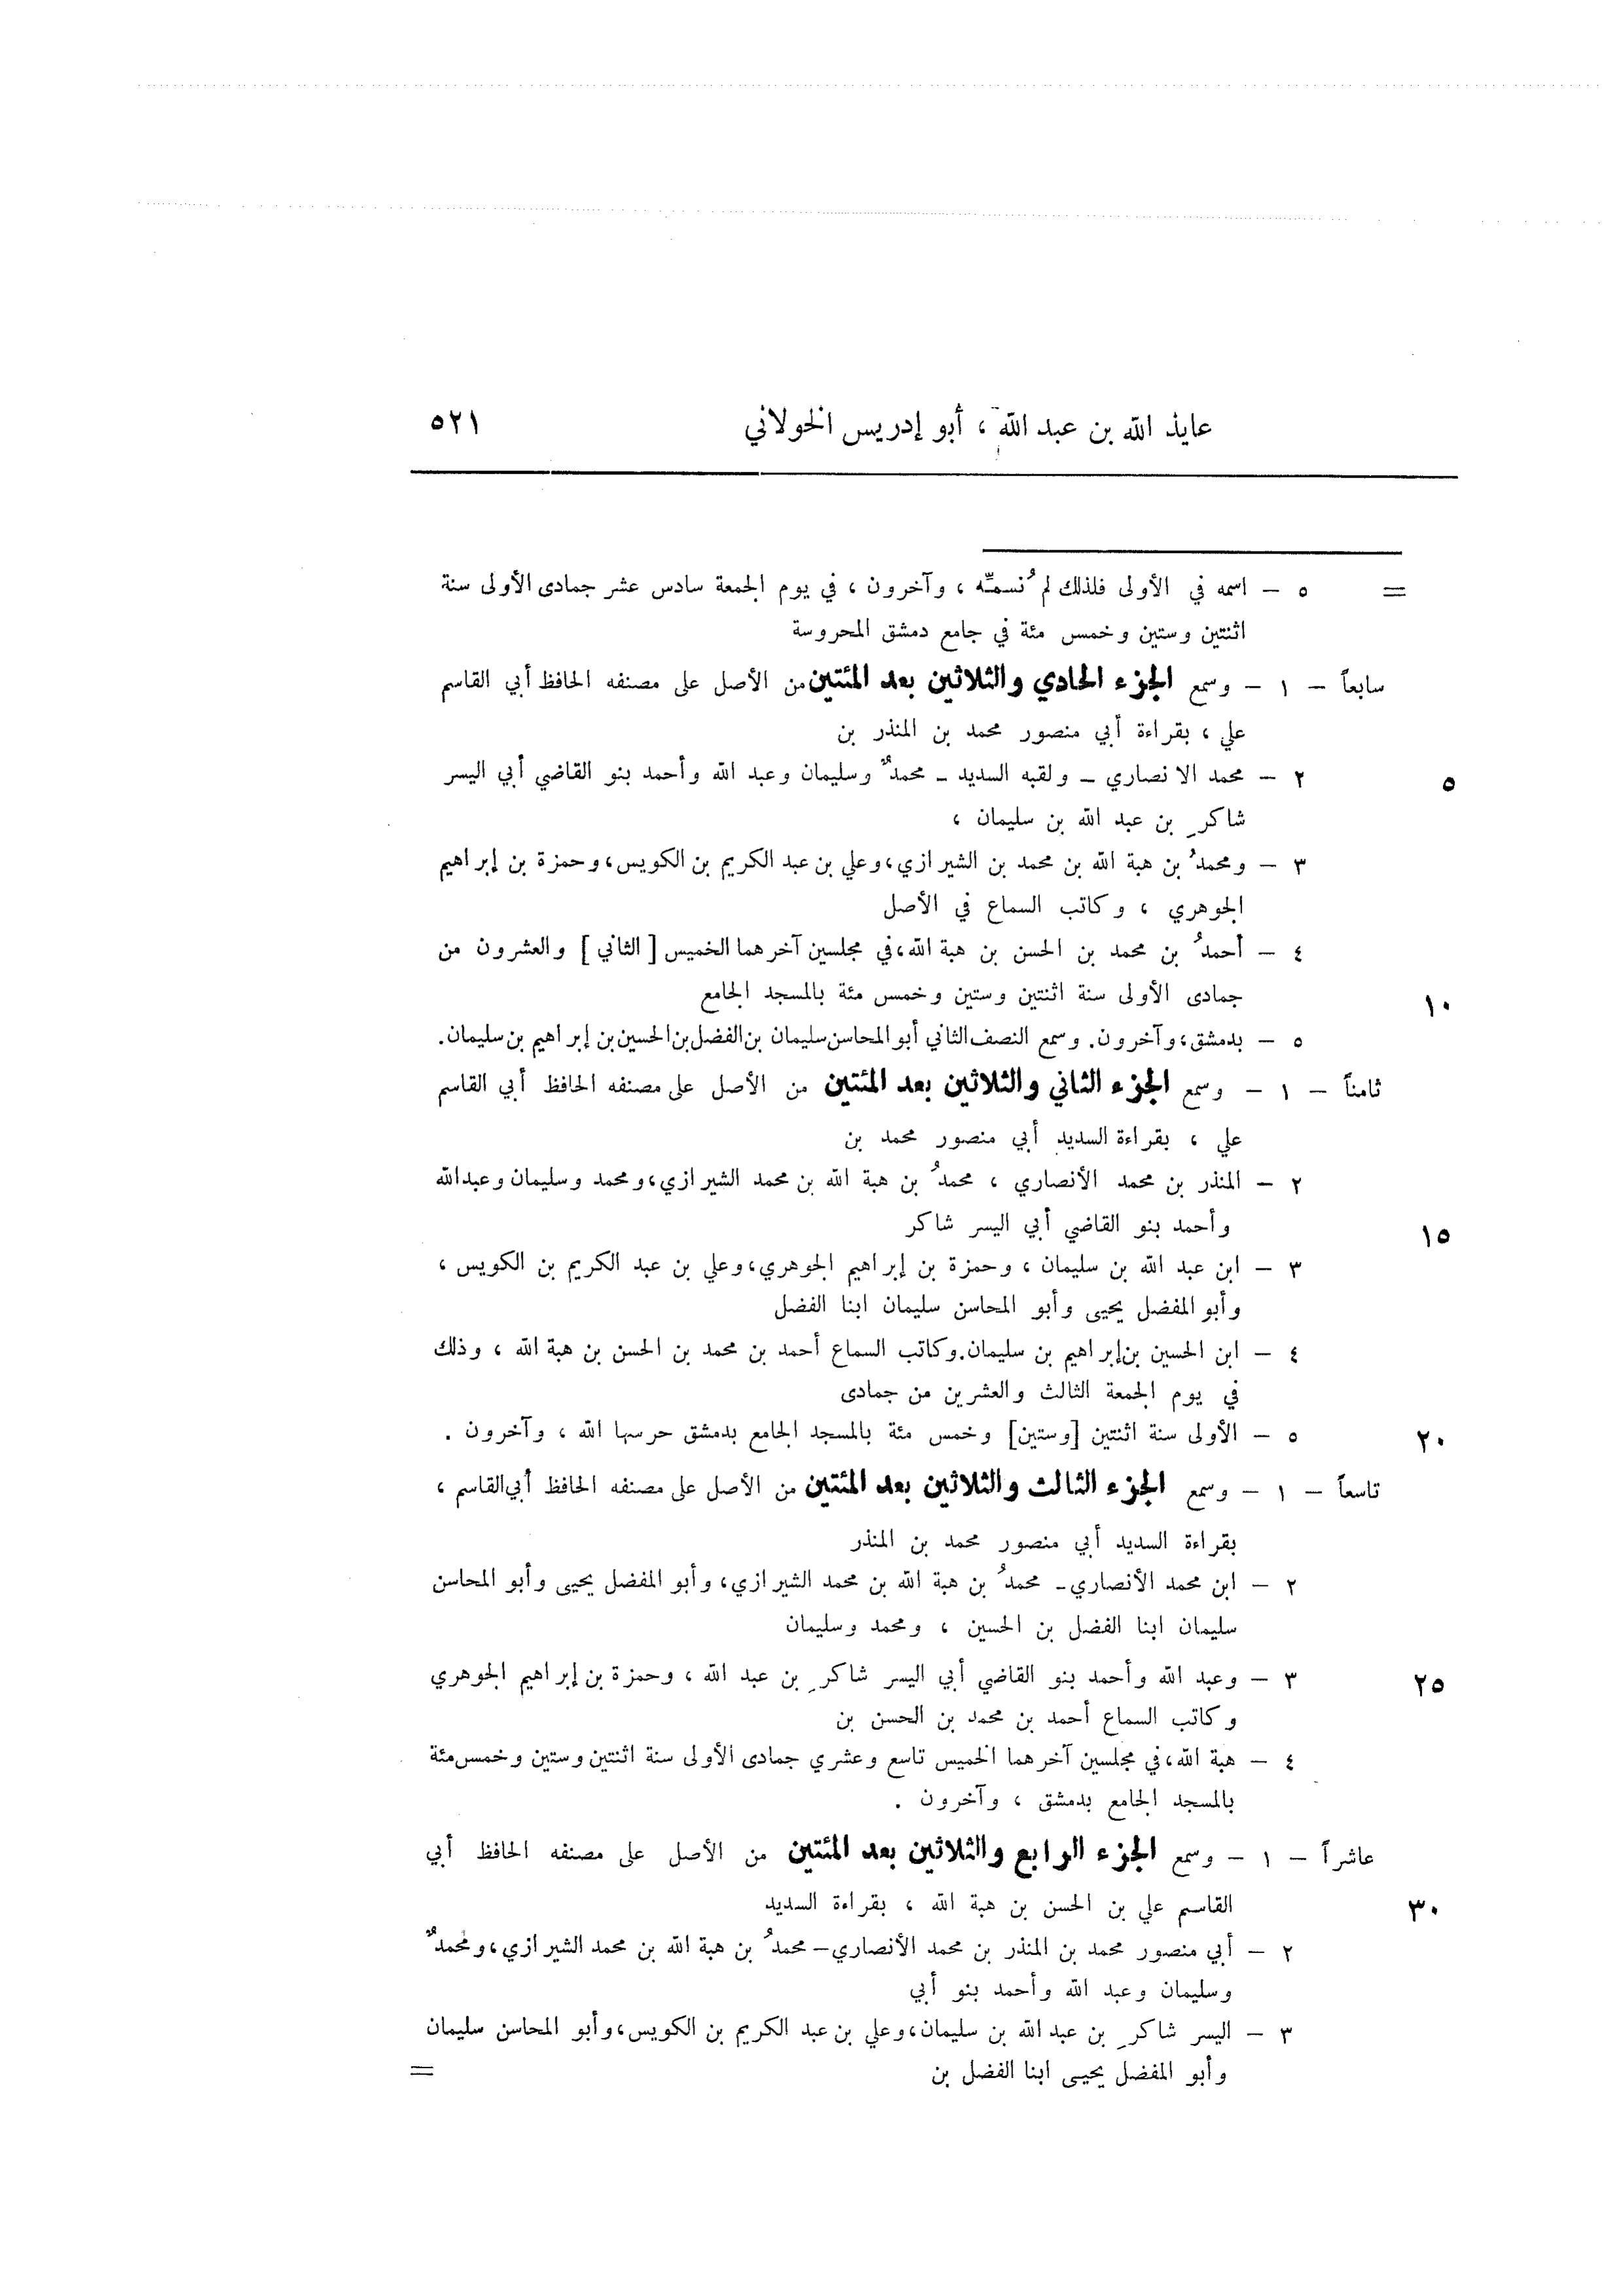 عايذ الله بن عبد الله ، أبو إدريس الخولاني ٥٢١
= ٥ – اسمه في الأولى فلذلك لم نُسمِّه ، وآخرون ، في يوم الجمعة سادس عشر جمادى الأولى سنة
اثنتين وستين وخمس مئة في جامع دمشق المحروسة
سابعاً – ١ – وسمع الجزء الحادي والثلاثين بعد المئتين من الأصل على مصنفه الحافظ أبي القاسم
علي ، بقراءة أبي منصور محمد بن المنذر بن
٥ ٢ – محمد الانصاري – ولقبه السديد – محمدٌ وسليمان وعبد الله وأحمد بنو القاضي أبي اليسر
شاكرِ بن عبد الله بن سليمان ،
٣ – ومحمدُ بن هبة الله بن محمد بن الشيرازي ، وعلي بن عبد الكريم بن الكويس ، وحمزة بن إبراهيم
الجوهري ، وكاتب السماع في الأصل
٤ – أحمدُ بن محمد بن الحسن بن هبة الله ، في مجلسين آخرهما الخميس [ الثاني ] والعشرون من
١٠ جمادى الأولى سنة اثنتين وستين وخمس مئة بالمسجد الجامع
٥ – بدمشق ، وآخرون . وسمع النصف الثاني أبو المحاسن سليمان بن الفضل بن الحسين بن إبراهيم بن سليمان .
ثامناً – ١ – وسمع الجزء الثاني والثلاثين بعد المئتين من الأصل على مصنفه الحافظ أبي القاسم
علي ، بقراءة السديد أبي منصور محمد بن
٢ – المنذر بن محمد الأنصاري ، محمدُ بن هبة الله بن محمد الشيرازي ، ومحمد وسليمان وعبد الله
١٥ وأحمد بنو القاضي أبي اليسر شاكر
٣ – ابن عبد الله بن سليمان ، وحمزة بن إبراهيم الجوهري ، وعلي بن عبد الكريم بن الكويس ،
وأبو المفضل يحيى وأبو المحاسن سليمان ابنا الفضل
٤ – ابن الحسين بن إبراهيم بن سليمان . وكاتب السماع أحمد بن محمد بن الحسن بن هبة الله ، وذلك
في يوم الجمعة الثالث والعشرين من جمادى
٢٠ ٥ – الأولى سنة اثنتين [وستين] وخمس مئة بالمسجد الجامع بدمشق حرسها الله ، وآخرون .
تاسعاً – ١ – وسمع الجزء الثالث والثلاثين بعد المئتين من الأصل على مصنفه الحافظ أبي القاسم ،
بقراءة السديد أبي منصور محمد بن المنذر
٢ – ابن محمد الأنصاري – محمدُ بن هبة الله بن محمد الشيرازي ، وأبو المفضل يحيى وأبو المحاسن
سليمان ابنا الفضل بن الحسين ، ومحمد وسليمان
٢٥ ٣ – وعبد الله وأحمد بنو القاضي أبي اليسر شاكرِ بن عبد الله ، وحمزة بن إبراهيم الجوهري
وكاتب السماع أحمد بن محمد بن الحسن بن
٤ – هبة الله ، في مجلسين آخرهما الخميس تاسع وعشري جمادى الأولى سنة اثنتين وستين وخمس مئة
بالمسجد الجامع بدمشق ، وآخرون .
عاشراً – ١ – وسمع الجزء الرابع والثلاثين بعد المئتين من الأصل على مصنفه الحافظ أبي
٣٠ القاسم علي بن الحسن بن هبة الله ، بقراءة السديد
٢ – أبي منصور محمد بن المنذر بن محمد الأنصاري – محمدُ بن هبة الله بن محمد الشيرازي ، ومحمدٌ
وسليمان وعبد الله وأحمد بنو أبي
٣ – اليسر شاكرِ بن عبد الله بن سليمان ، وعلي بن عبد الكريم بن الكويس ، وأبو المحاسن سليمان
وأبو المفضل يحيى ابنا الفضل بن =